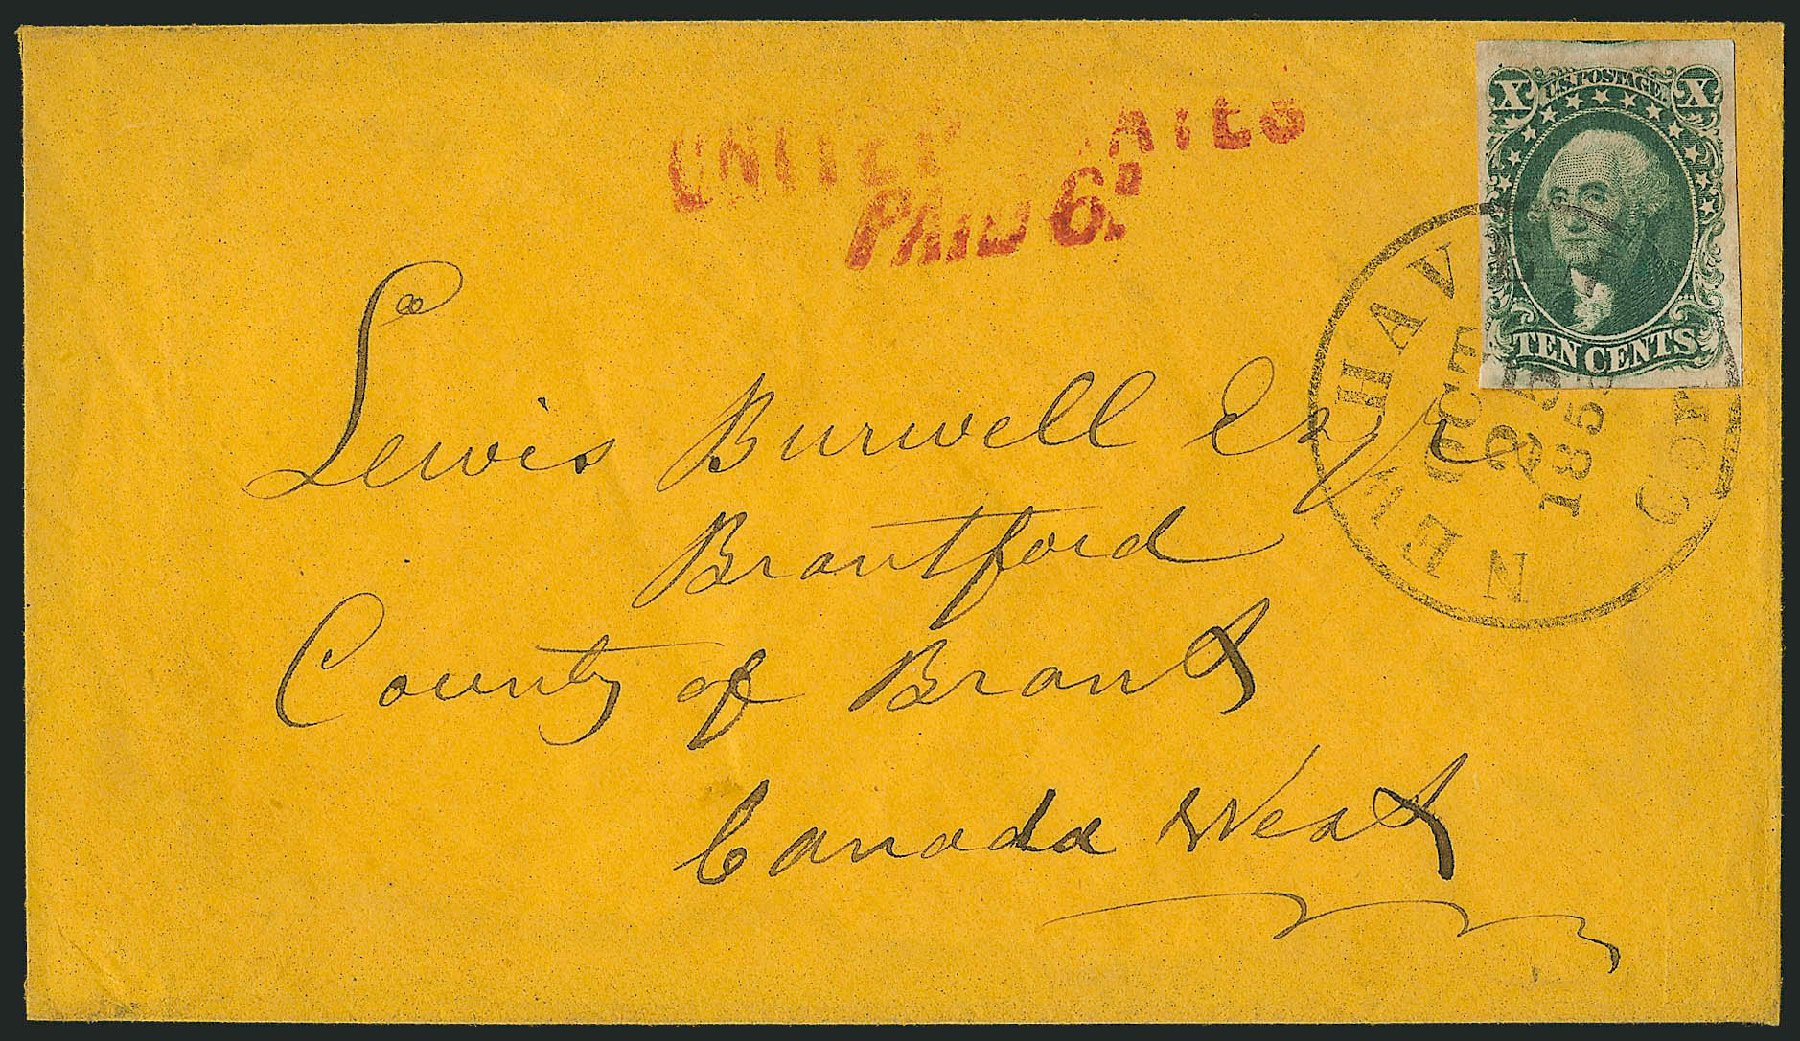 UNITED STATES
PAID 6D
X U.S. POSTAGE X
TEN CENTS
NEW HAVEN
OCT
185
Lewis Burwell Esqr
Brantford
County of Brant
Canada West